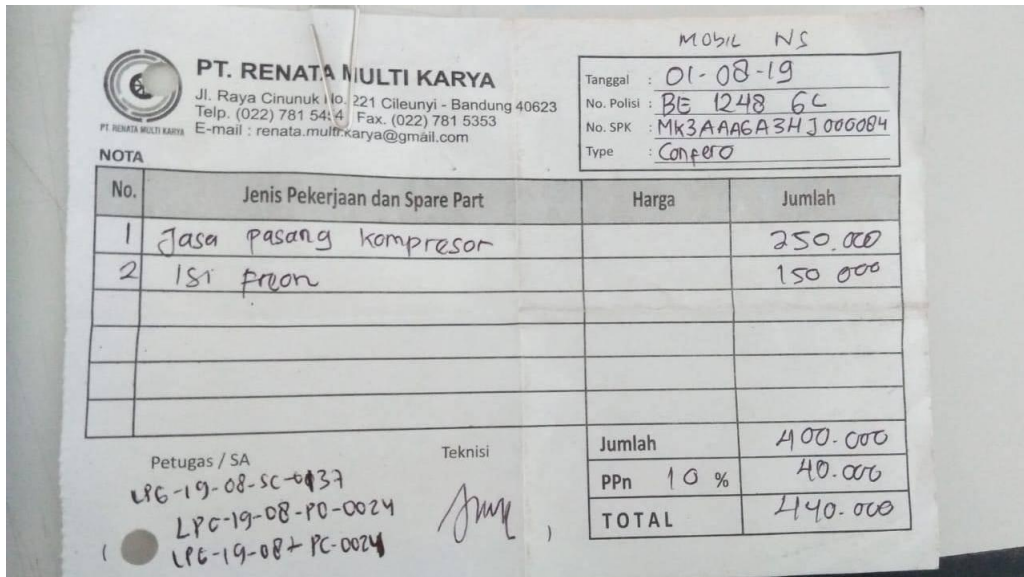 MOBIL NS
PT. RENATA MULTI KARYA
Jl. Raya Cinunuk No. 221 Cileunyi - Bandung 40623
Telp. (022) 781 54 4 Fax. (022) 781 5353
E-mail : renata.multi.karya@gmail.com
PT. RENATA MULTI KARYA
Tanggal : 01-08-19
No. Polisi : BE 1248 GC
No. SPK : MK3AAAGA3HJ000084
Type : Confero
NOTA
No. Jenis Pekerjaan dan Spare Part Harga Jumlah
1 Jasa pasang kompresor 250.000
2 Isi freon 150 000
Jumlah 400.000
PPn 10 % 40.000
TOTAL 440.000
Petugas / SA
Teknisi
LPG-19-08-SC-0137
LPG-19-08-PO-0024
LPG-19-08-PC-0024